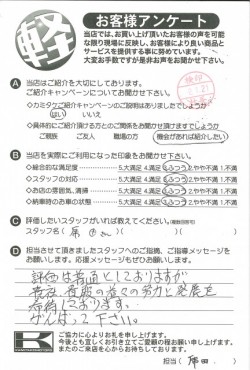 軽
お客様アンケート
当店では、お買い上げ頂いたお客様の声を可能
な限り現場に反映し、お客様により良い商品と
サービスを提供する事に努めています。
大変お手数ですが是非お声をお聞かせ下さい。
A 当店はご紹介を大切にしております。
ご紹介キャンペーンについてお聞かせ下さい。
◇カミタケご紹介キャンペーンのご説明はありましたでしょうか
はい いいえ
◇具体的にご紹介頂ける方とのご関係をお聞かせ頂けますでしょうか
ご親族 ご友人 職場の方 機会があれば紹介したい
B 当店を実際にご利用になった印象をお聞かせ下さい。
◇総合的な満足度 5.大満足 4.満足 3.ふつう 2.やや不満 1.不満
◇スタッフの対応 5.大満足 4.満足 3.ふつう 2.やや不満 1.不満
◇お店の雰囲気、清掃 5.大満足 4.満足 3.ふつう 2.やや不満 1.不満
◇納車時のお車の状態 5.大満足 4.満足 3.ふつう 2.やや不満 1.不満
C 評価したいスタッフがいれば教えてください。(複数回答可)
スタッフ名( さん)
D 担当させて頂きましたスタッフへのご指摘、ご指導メッセージを
お願いします。応援メッセージもぜひお願いします。
評価は普通としておりますが
貴社、貴殿の益々の努力と発展を
期待しております。
がんばって下さい。
K
ご協力に心よりお礼を申し上げます。
今後とも宜しくお引き立てご愛顧の程お願い申し上げます。
またのご来店を心からお待ちしております。
担当( 席田 )